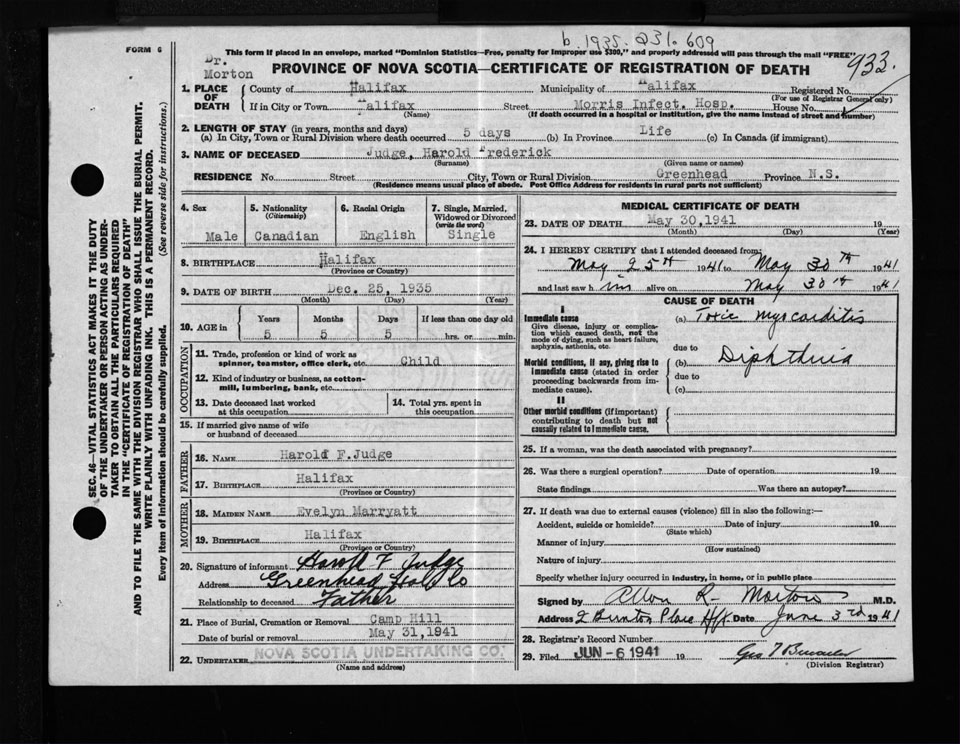 b 1935. 231. 609
FORM 6
This form if placed in an envelope, marked "Dominion Statistics—Free, penalty for improper use $300," and properly addressed will pass through the mail "FREE"
Dr.
Morton
PROVINCE OF NOVA SCOTIA—CERTIFICATE OF REGISTRATION OF DEATH
933.
1. PLACE OF DEATH
County of Halifax Municipality of Halifax Registered No.
(For use of Registrar General only)
If in City or Town Halifax Street Morris Infect. Hosp. House No.
(Name) (If death occurred in a hospital or institution, give the name instead of street and number)
2. LENGTH OF STAY (in years, months and days)
(a) In City, Town or Rural Division where death occurred 5 days (b) In Province Life (c) In Canada (if immigrant)
3. NAME OF DECEASED Judge, Harold Frederick
(Surname) (Given name or names)
RESIDENCE No. Street City, Town or Rural Division Greenhead Province N.S.
(Residence means usual place of abode. Post Office Address for residents in rural parts not sufficient)
4. Sex Male
5. Nationality (Citizenship) Canadian
6. Racial Origin English
7. Single, Married, Widowed or Divorced (write the word) Single
8. BIRTHPLACE Halifax
(Province or Country)
9. DATE OF BIRTH Dec. 25, 1935
(Month) (Day) (Year)
10. AGE in Years 5 Months 5 Days 5 If less than one day old hrs. or min.
OCCUPATION
11. Trade, profession or kind of work as spinner, teamster, office clerk, etc. Child
12. Kind of industry or business, as cotton-mill, lumbering, bank, etc.
13. Date deceased last worked at this occupation
14. Total yrs. spent in this occupation
15. If married give name of wife or husband of deceased
FATHER
16. NAME Harold F. Judge
17. BIRTHPLACE Halifax
(Province or Country)
MOTHER
18. MAIDEN NAME Evelyn Marryatt
19. BIRTHPLACE Halifax
(Province or Country)
20. Signature of informant Harold F Judge
Address Greenhead Hal Co
Relationship to deceased Father
21. Place of Burial, Cremation or Removal Camp Hill
Date of burial or removal May 31, 1941
22. UNDERTAKER NOVA SCOTIA UNDERTAKING CO.
(Name and address)
MEDICAL CERTIFICATE OF DEATH
23. DATE OF DEATH May 30, 1941 19
(Month) (Day) (Year)
24. I HEREBY CERTIFY that I attended deceased from:
May 25th 1941 to May 30th 1941
and last saw him alive on May 30th 1941
CAUSE OF DEATH
I
Immediate cause
Give disease, injury or complication which caused death, not the mode of dying, such as heart failure, asphyxia, asthenia, etc.
(a) Toxic myocarditis
due to
Morbid conditions, if any, giving rise to immediate cause (stated in order proceeding backwards from immediate cause).
(b) Diphtheria
due to
(c)
II
Other morbid conditions (if important) contributing to death but not causally related to immediate cause.
25. If a woman, was the death associated with pregnancy?
26. Was there a surgical operation? Date of operation 19
State findings Was there an autopsy?
27. If death was due to external causes (violence) fill in also the following:—
Accident, suicide or homicide? Date of injury 19
(State which)
Manner of injury
(How sustained)
Nature of injury
Specify whether injury occurred in industry, in home, or in public place
Signed by Allan R. Morton M.D.
Address Place Hfx Date June 3rd 1941
28. Registrar's Record Number
29. Filed JUN - 6 1941 19
(Division Registrar)
SEC. 46—VITAL STATISTICS ACT MAKES IT THE DUTY
OF THE UNDERTAKER OR PERSON ACTING AS UNDER-
TAKER TO OBTAIN ALL THE PARTICULARS REQUIRED
IN THE "CERTIFICATE OF REGISTRATION OF DEATH"
AND TO FILE THE SAME WITH THE DIVISION REGISTRAR WHO SHALL ISSUE THE BURIAL PERMIT.
WRITE PLAINLY WITH UNFADING INK. THIS IS A PERMANENT RECORD.
Every item of information should be carefully supplied. (See reverse side for instructions.)